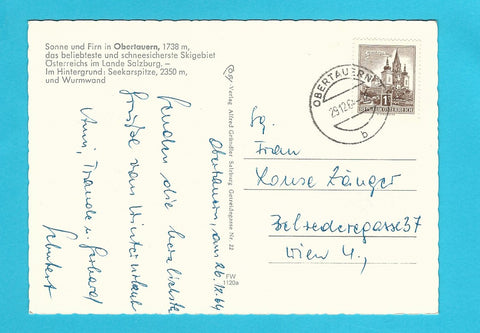 Sonne und Firn in Obertauern, 1738 m,
das beliebteste und schneesicherste Skigebiet
Österreichs im Lande Salzburg. –
Im Hintergrund: Seekarspitze, 2350 m,
und Wurmwand
Obertauern, am 26.12.64
Senden die herzlichsten
Grüße vom Winterurlaub
Anni, Traude u. Gerhard
Schubert
Verlag Alfred Gründler Salzburg Getreidegasse Nr. 22
FW
1120a
OBERTAUERN
29.12.64
b
1
REPUBLIK ÖSTERREICH
Sg.
Frau
Zänger
Belvederegasse 37
Wien 4.,